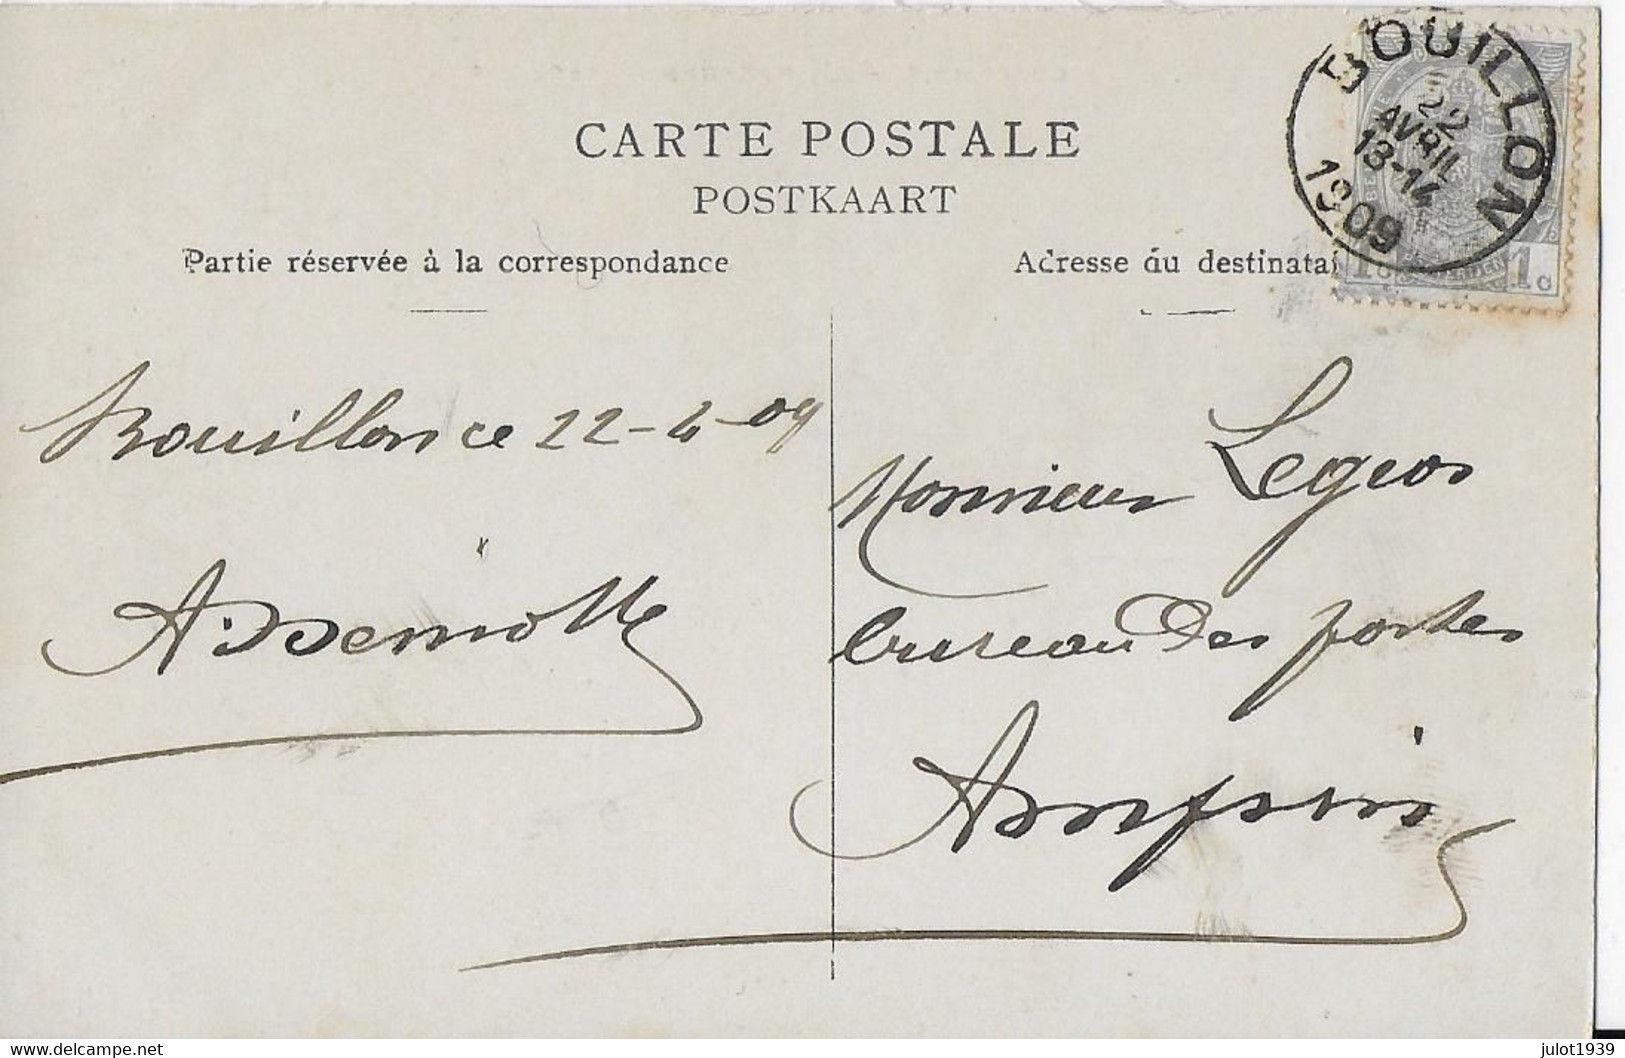 CARTE POSTALE
POSTKAART
Partie réservée à la correspondance
Adresse du destinatai
BOUILLON
22
AVRIL
13-14
1909
1c 1c
Bouillon ce 22-4-09
Monsieur Legros
bureau des postes
delcampe.net
julot1939